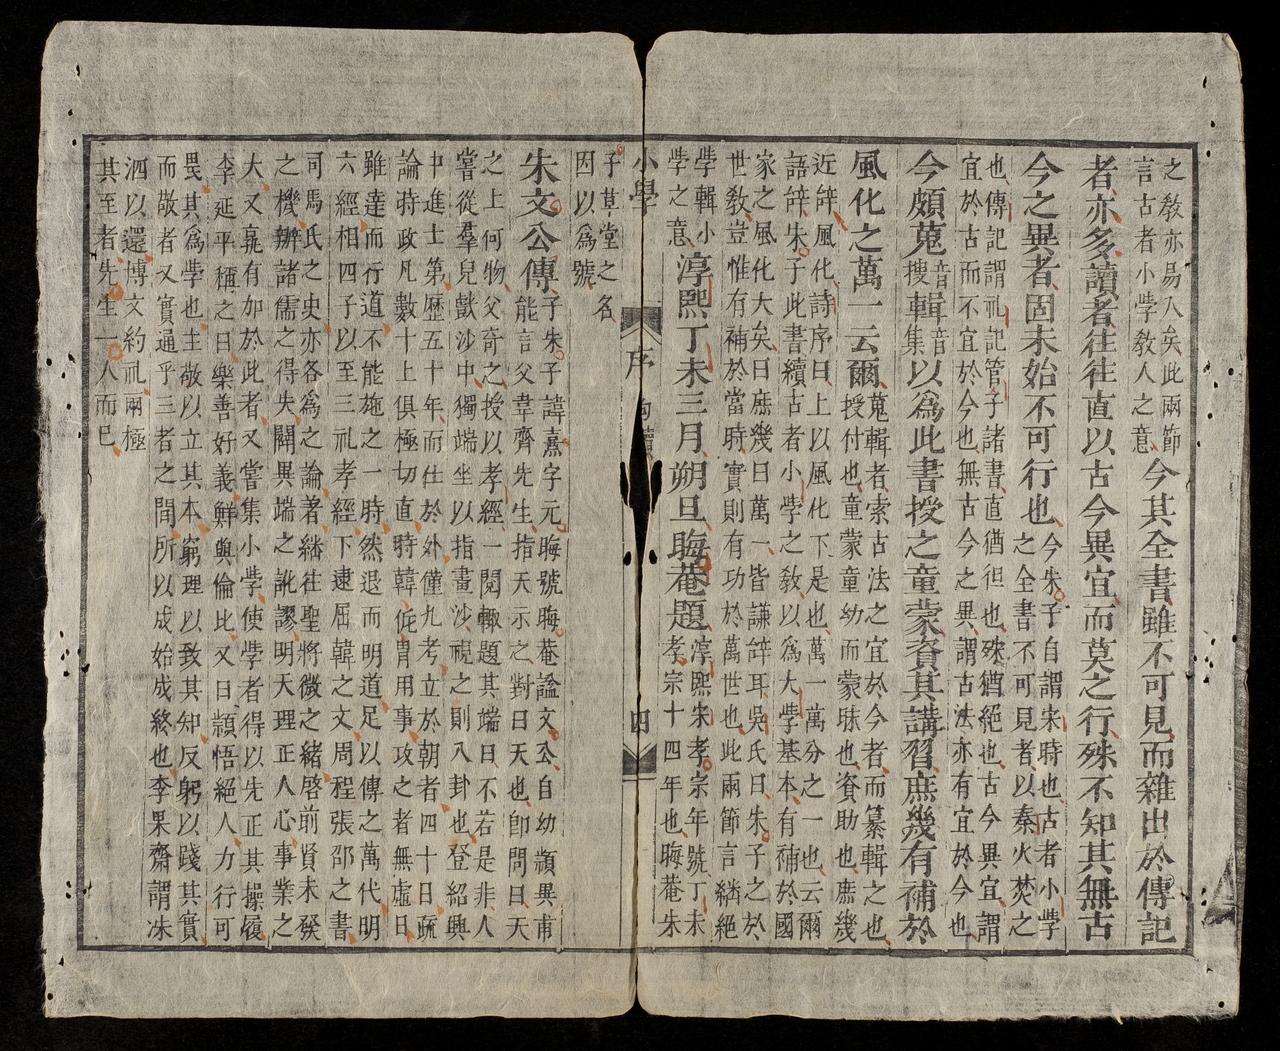 之敎亦易入矣此兩節
言古者小學敎人之意
今其全書雖不可見而雜出於傳記
者亦多讀者往往直以古今異宜而莫之行殊不知其無古
今之異者固未始不可行也
今朱子自謂宋時也古者小學
之全書不可見者以秦火焚之
也傳記謂礼記管子諸書直猶徂也殊猶絕也古今異宜謂
宜於古而不宜於今也無古今之異謂古法亦有宜於今也
今頗蒐
音
搜
輯
音
集
以爲此書授之童蒙資其講習庶幾有補於
風化之萬一云爾
蒐輯者索古法之宜於今者而纂輯之也
授付也童蒙童幼而蒙昧也資助也庶幾
近辝風化詩序曰上以風化下是也萬一萬分之一也云爾
語辝朱子此書續古者小學之敎以爲大學基本有補於國
家之風化大矣曰庶幾曰萬一皆謙辝耳吳氏曰朱子之於
世敎豈惟有補於當時實則有功於萬世也此兩節言緝絕
學輯小
學之意
淳熙丁未三月朔旦晦菴題
淳熙宋孝宗年號丁未
孝宗十四年也晦菴朱
小學
序
四
子草堂之名
因以爲號
朱文公傳
子朱子諱熹字元晦號晦菴謚文公自幼穎異甫
能言父韋齊先生指天示之對曰天也卽問曰天
之上何物父奇之授以孝經一閱輙題其端曰不若是非人
嘗從羣兒戱沙中獨端坐以指畫沙視之則八卦也登紹興
中進士第歷五十年而仕於外僅九考立於朝者四十日疏
論時政凡數十上俱極切直時韓侂胄用事攻之者無虛日
雖達而行道不能施之一時然退而明道足以傳之萬代明
六經相四子以至三礼孝經下逮屈韓之文周程張邵之書
司馬氏之史亦各爲之論著緝徃聖將微之緒啓前賢未發
之機辨諸儒之得失闢異端之訛謬明天理正人心事業之
大又孰有加於此者又嘗集小學使學者得以先正其操履
李延平稱之曰樂善好義鮮與倫比又曰穎悟絕人力行可
畏其爲學也主敬以立其本窮理以致其知反躬以踐其實
而敬者又實通乎三者之間所以成始成終也李果齋謂洙
泗以還博文約礼兩極
其至者先生一人而已